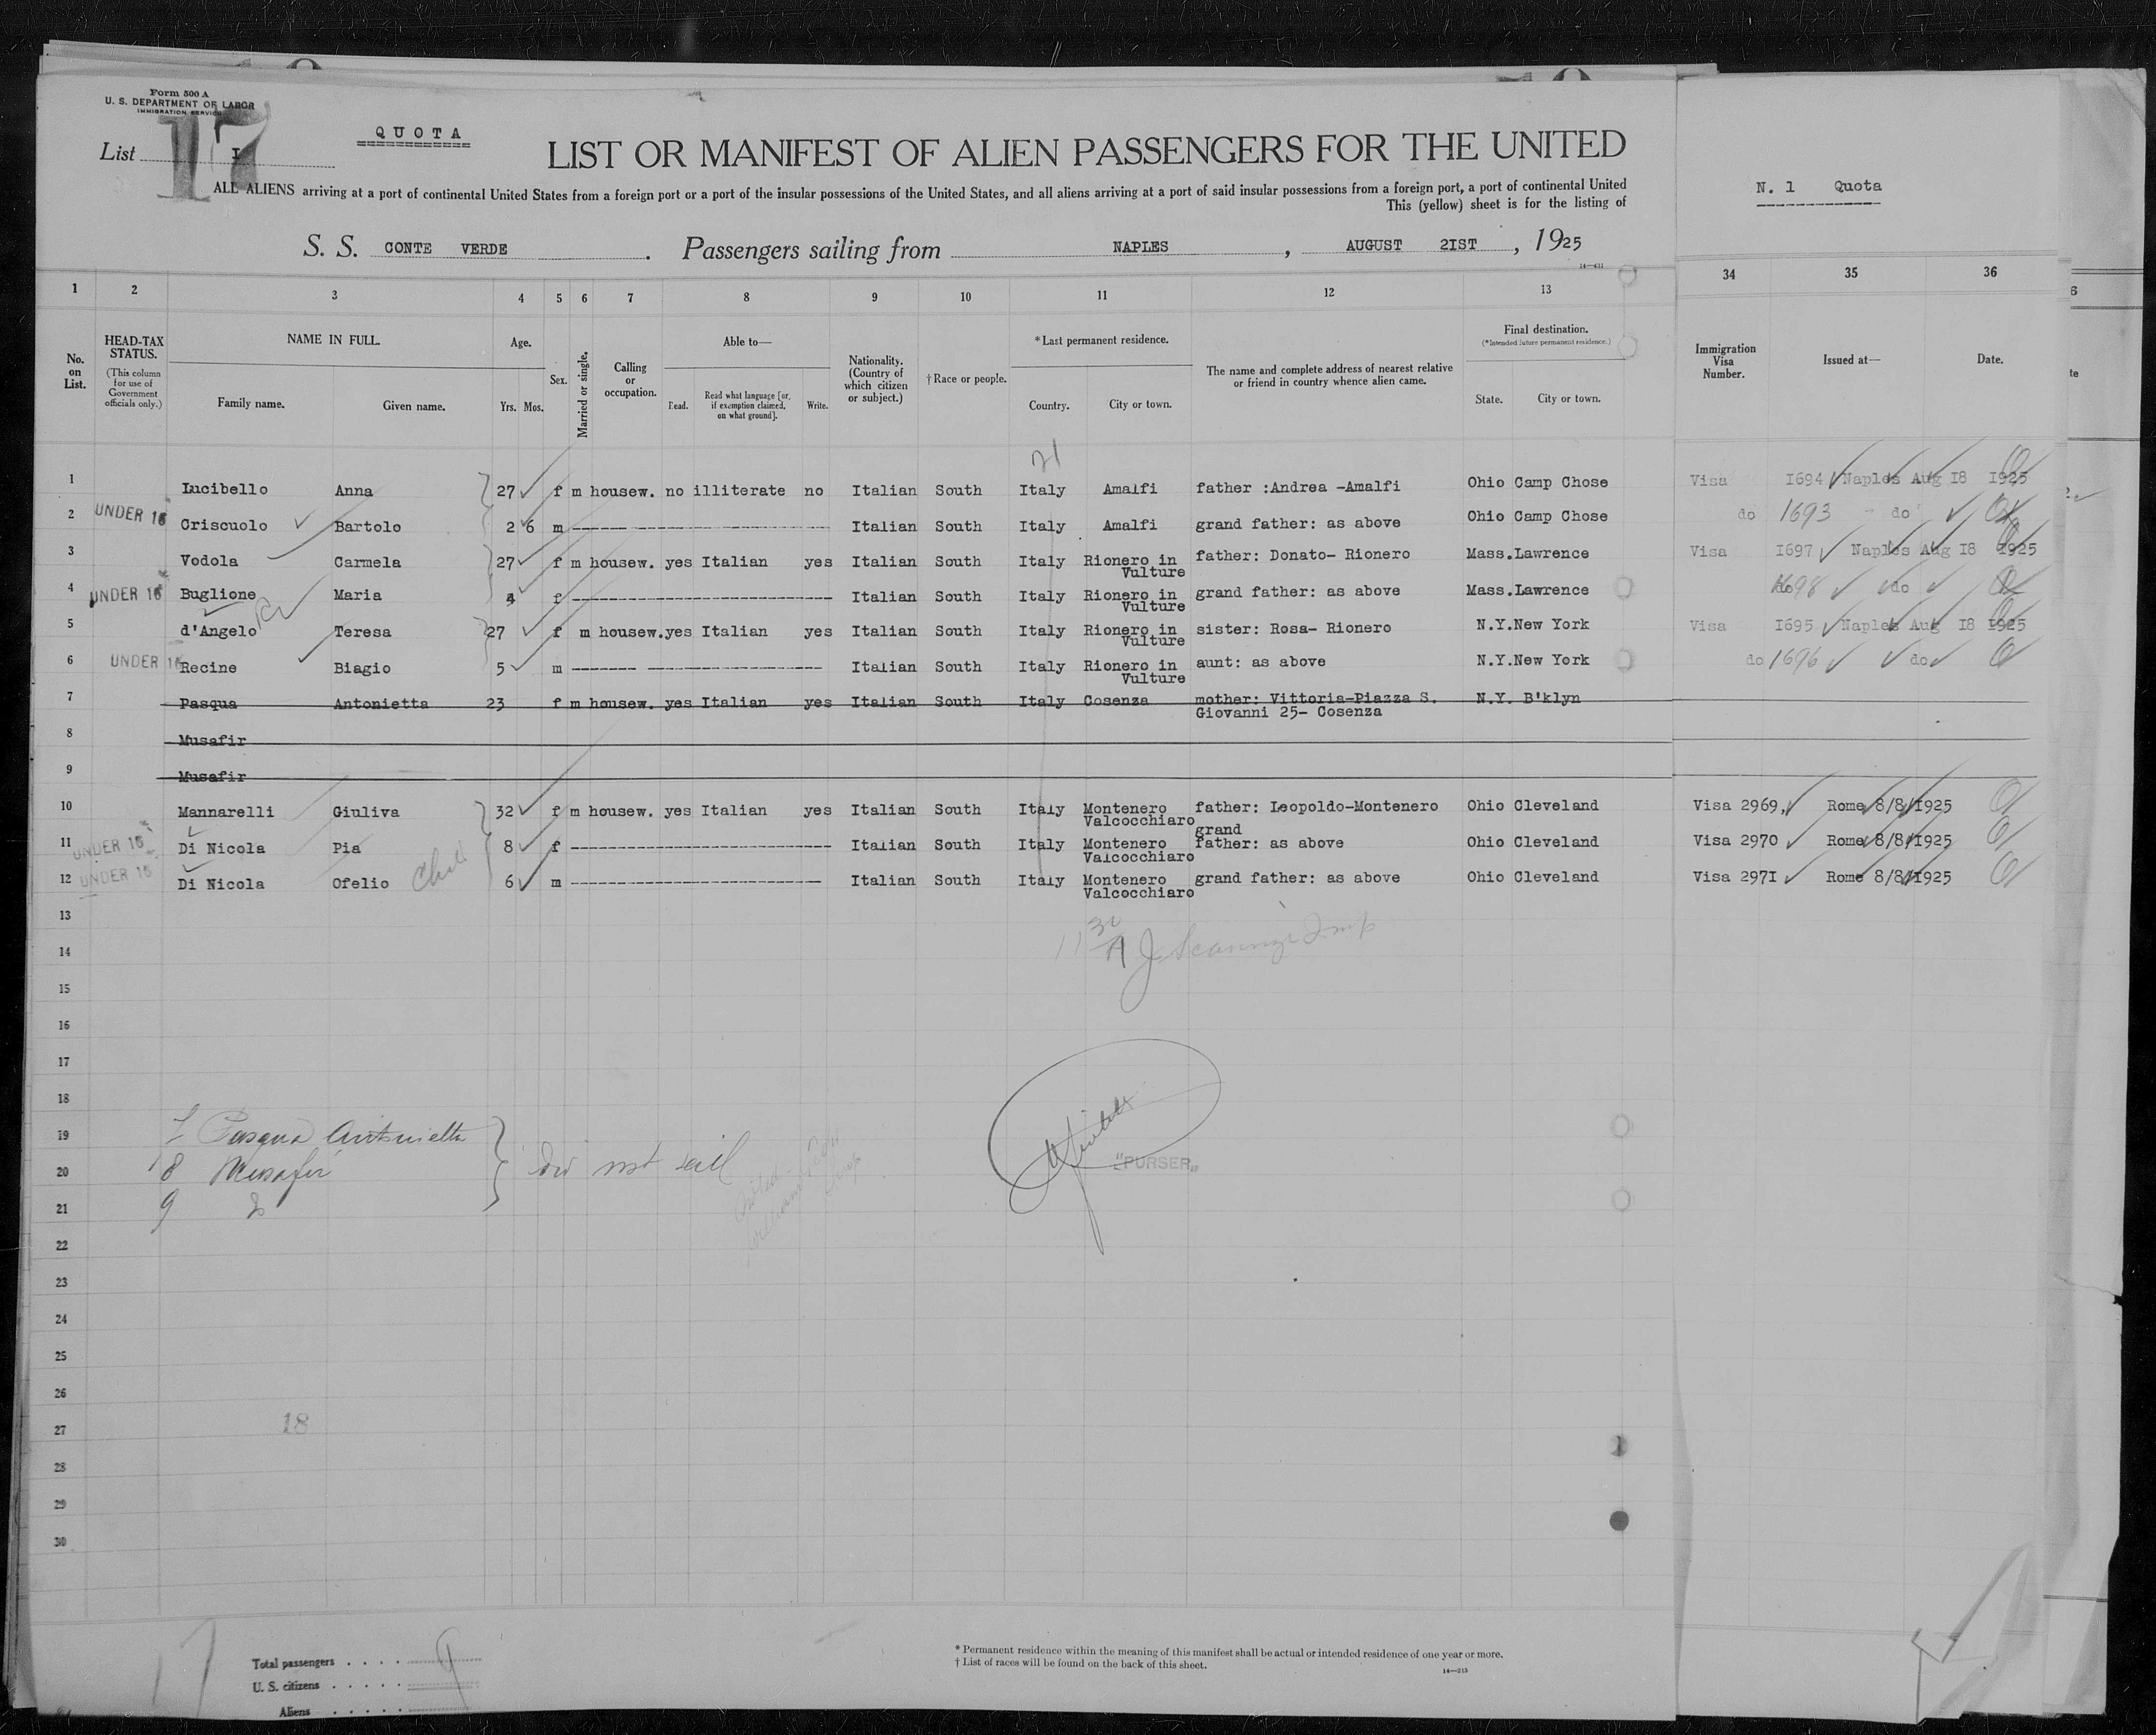 Form 500 A
U. S. DEPARTMENT OF LABOR
IMMIGRATION SERVICE
17
List I
QUOTA
LIST OR MANIFEST OF ALIEN PASSENGERS FOR THE UNITED
ALL ALIENS arriving at a port of continental United States from a foreign port or a port of the insular possessions of the United States, and all aliens arriving at a port of said insular possessions from a foreign port, a port of continental United
This (yellow) sheet is for the listing of
N. 1 Quota
S. S. CONTE VERDE . Passengers sailing from NAPLES , AUGUST 2IST , 1925
14—431
1 2 3 4 5 6 7 8 9 10 11 12 13 34 35 36
No. on List.
HEAD-TAX STATUS.
(This column for use of Government officials only.)
NAME IN FULL.
Family name. Given name.
Age.
Yrs. Mos.
Sex.
Married or single.
Calling or occupation.
Able to—
Read. Read what language [or, if exemption claimed, on what ground]. Write.
Nationality. (Country of which citizen or subject.)
†Race or people.
*Last permanent residence.
Country. City or town.
The name and complete address of nearest relative or friend in country whence alien came.
Final destination.
(*Intended future permanent residence.)
State. City or town.
Immigration Visa Number.
Issued at—
Date.
21
1 Lucibello Anna 27 f m housew. no illiterate no Italian South Italy Amalfi father :Andrea -Amalfi Ohio Camp Chose Visa I694 Naples Aug I8 I925
2 UNDER 16 Criscuolo Bartolo 2 6 m Italian South Italy Amalfi grand father: as above Ohio Camp Chose do 1693 do
3 Vodola Carmela 27 f m housew. yes Italian yes Italian South Italy Rionero in Vulture father: Donato- Rionero Mass.Lawrence Visa I697 Naples Aug I8 I925
4 UNDER 16 Buglione Maria 4 f Italian South Italy Rionero in Vulture grand father: as above Mass.Lawrence do 1698 do
5 d'Angelo Teresa 27 f m housew.yes Italian yes Italian South Italy Rionero in Vulture sister: Rosa- Rionero N.Y.New York Visa I695 Naples Aug I8 I925
6 UNDER 16 Recine Biagio 5 m Italian South Italy Rionero in Vulture aunt: as above N.Y.New York do 1696 do
7 Pasqua Antonietta 23 f m housew. yes Italian yes Italian South Italy Cosenza mother: Vittoria-Piazza S. Giovanni 25- Cosenza N.Y. B'klyn
8 Musafir
9 Musafir
10 Mannarelli Giuliva 32 f m housew. yes Italian yes Italian South Italy Montenero Valcocchiaro father: Leopoldo-Montenero Ohio Cleveland Visa 2969, Rome 8/8/I925
11 UNDER 16 Di Nicola Pia 8 f Italian South Italy Montenero Valcocchiaro grand father: as above Ohio Cleveland Visa 2970 Rome 8/8/I925
12 UNDER 16 Di Nicola Ofelio 6 m Italian South Italy Montenero Valcocchiaro grand father: as above Ohio Cleveland Visa 297I Rome 8/8/I925
13
14
15
16
17
18
19 7 Pasqua Antonietta
20 8 Musafir did not sail
"PURSER"
21 9
22
23
24
25
26
27
18
28
29
30
17
Total passengers 9
U. S. citizens
Aliens
* Permanent residence within the meaning of this manifest shall be actual or intended residence of one year or more.
† List of races will be found on the back of this sheet.
14—213